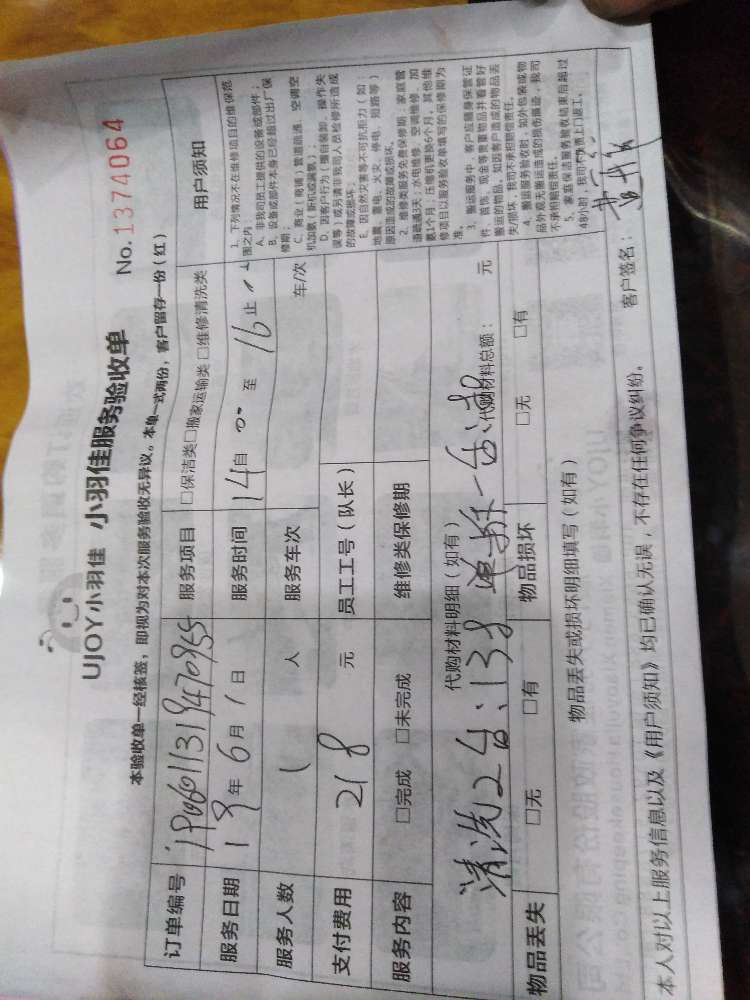 UJOY小羽佳 小羽佳服务验收单
No. 1374064
本验收单一经核签，即视为对本次服务验收无异议。本单一式两份，客户留存一份（红）
订单编号
服务项目 □保洁类□搬家运输类 □维修清洗类
服务日期 19年6月1日 服务时间 14 自 至 16 止
服务人数 1 人 服务车次 车/次
支付费用 218 元 员工工号（队长）
服务内容 □完成 □未完成 维修类保修期
代购材料明细（如有）
清洗2台:138 单拆一台:
代购材料总额： 元
物品丢失 □无 □有 物品损坏 □无 □有
物品丢失或损坏明细填写（如有）
用户须知
1. 下列情况不在维修项目的维保范
围之内：
A. 非我司员工提供的设备或部件；
B. 设备或部件本身已经超过出厂保
修期；
C. 商业（商铺）管道疏通、空调空
机加氟（新机或漏氟）；
D. 因客户行为（擅自装卸、操作失
误等）或另请非我司人员检修所造成
的故障或损坏；
E. 因自然灾害等不可抗拒力（如：
地震、雷电、水灾、停电、短路等）
原因造成的故障或损坏。
2. 维修类服务免费保修期：家庭管
道疏通3天；水电维修、空调维修、加
氟1个月；压缩机更换6个月，其他维
修项目以服务验收单填写的保修期为
准。
3. 搬运服务中，客户应随身保管证
件、首饰、现金等贵重物品并看管好
搬运的物品，如因客户造成的物品丢
失/损坏，我司不承担赔偿责任。
4. 搬运服务验收时，如外包装或物
品外观无搬运造成的损伤痕迹，我司
不承担赔偿责任。
5. 家庭保洁服务验收结束后超过
48小时，我司不负责上门返工。
本人对以上服务信息以及《用户须知》均已确认无误，不存在任何争议纠纷。
客户签名：